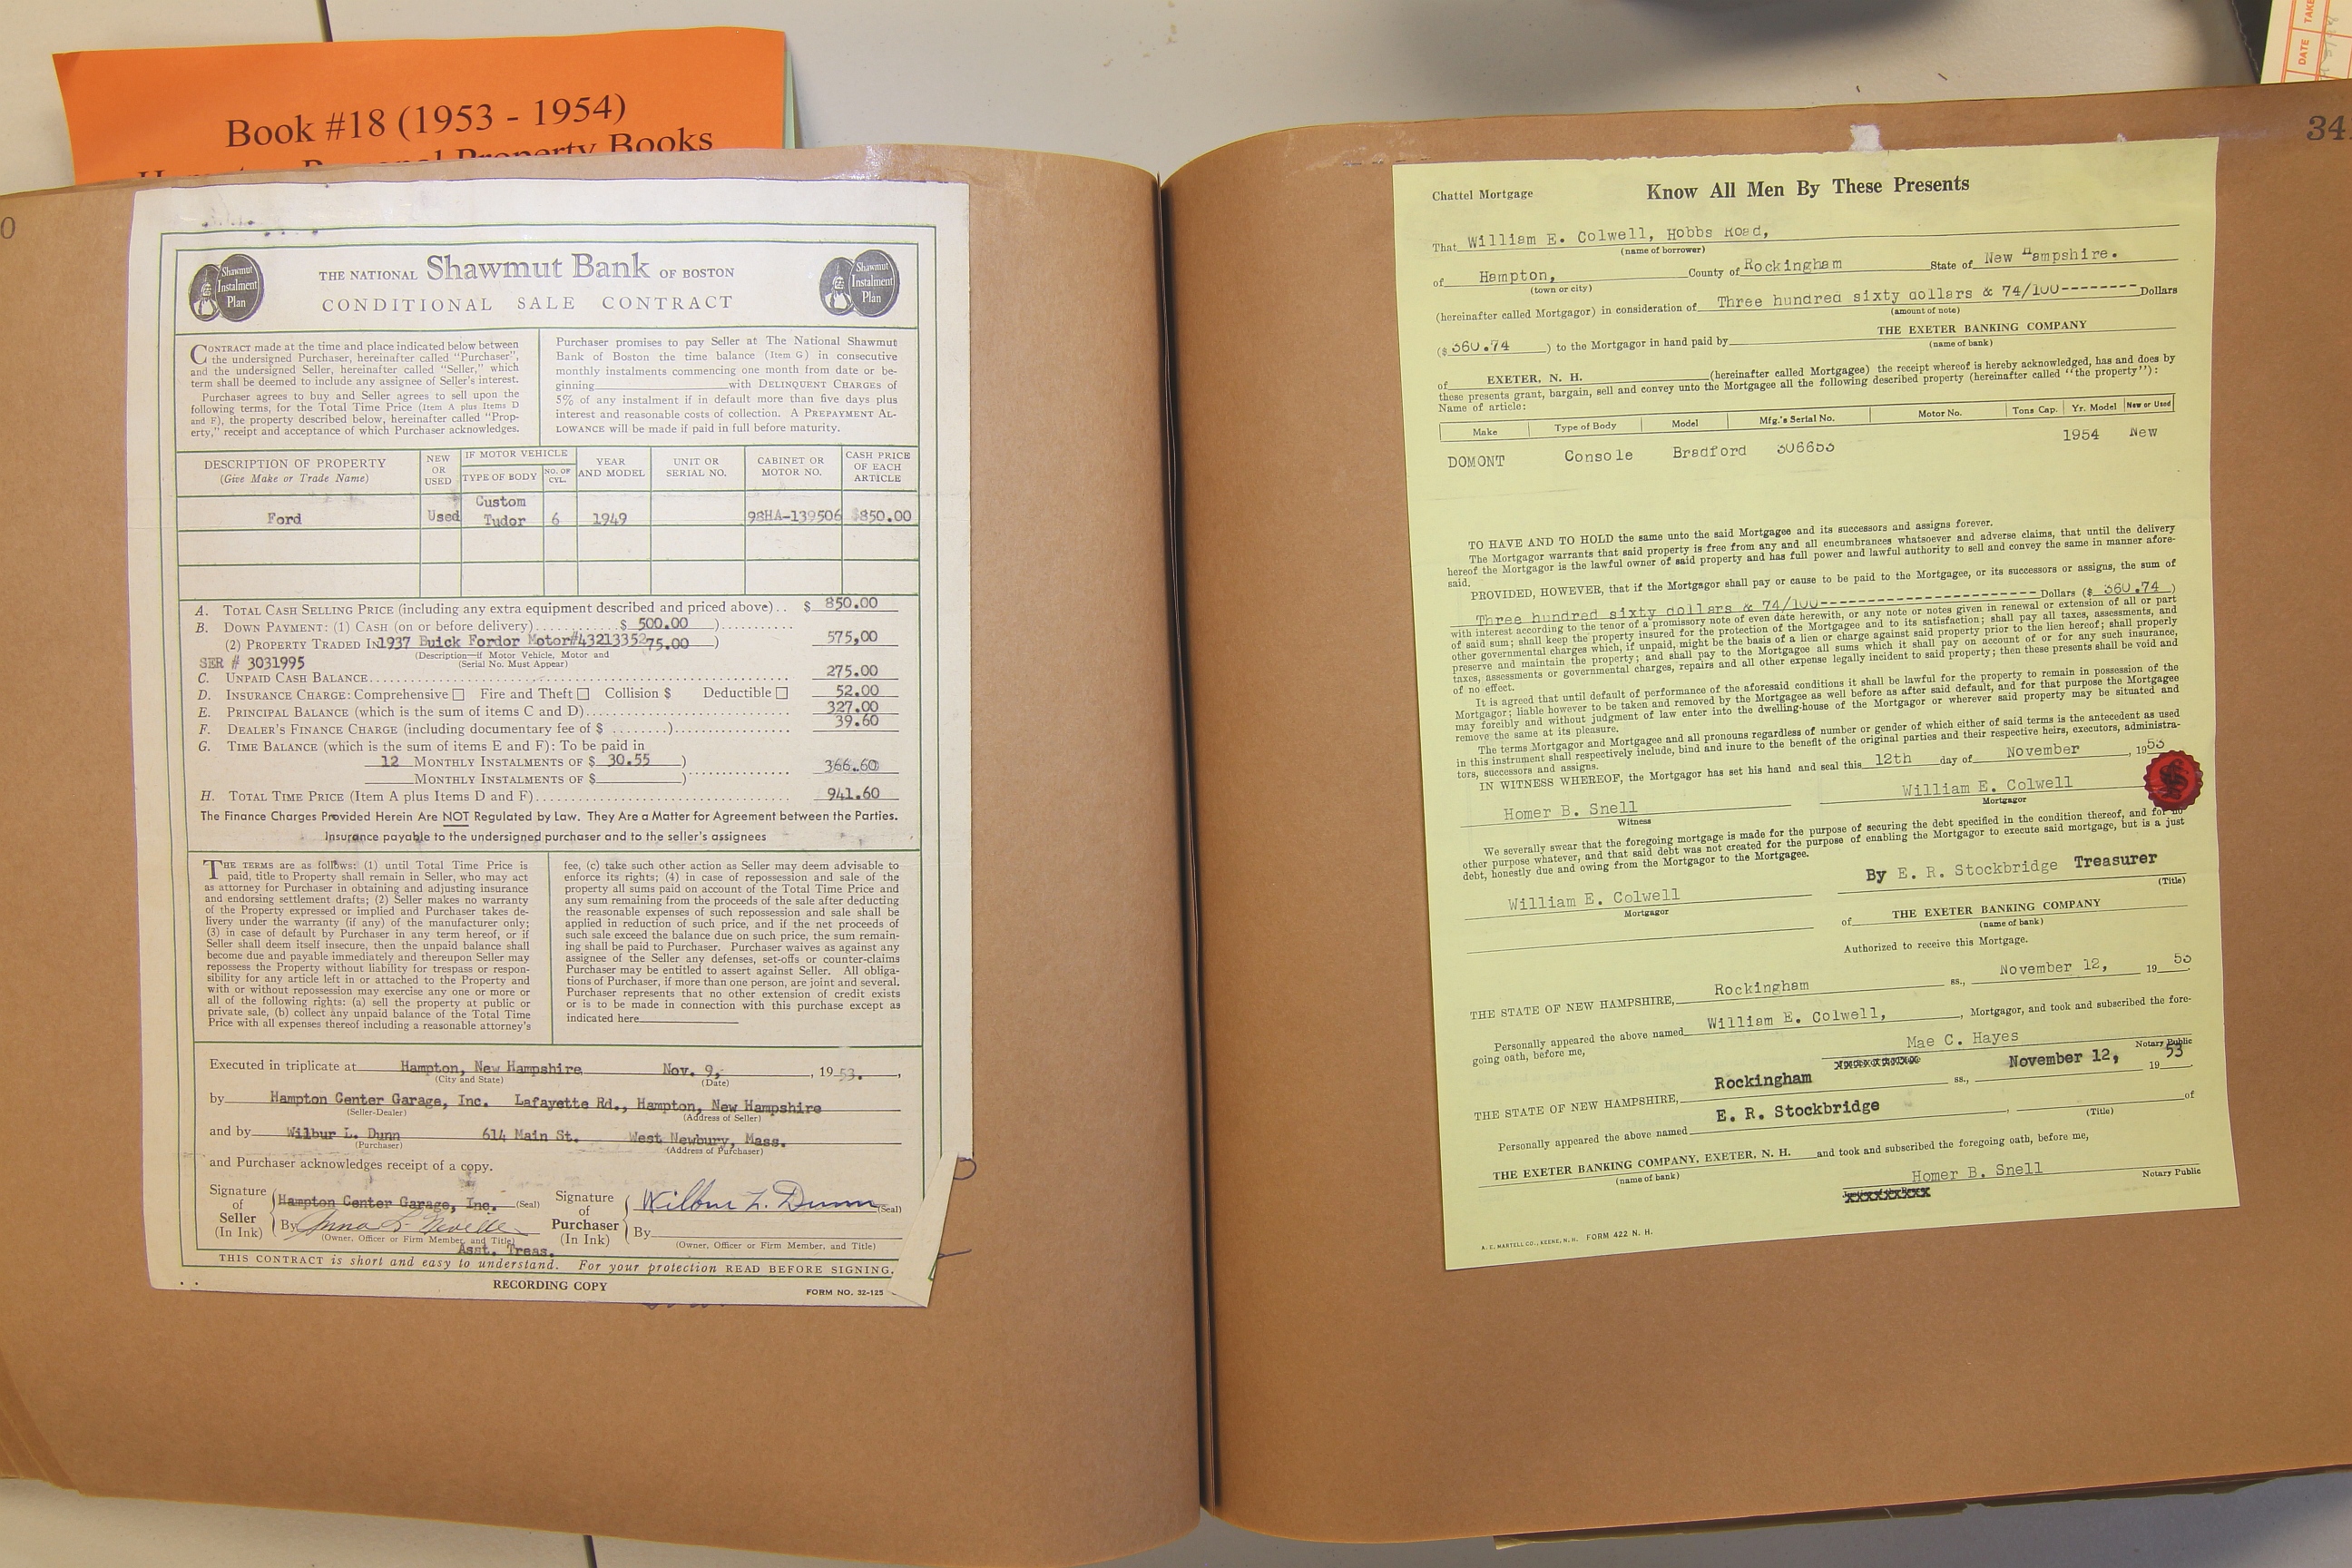 Book #18 (1953 - 1954)
Personal Property Books
DATE
0
34
Shawmut
Instalment
Plan
THE NATIONAL Shawmut Bank OF BOSTON
CONDITIONAL SALE CONTRACT
Shawmut
Instalment
Plan
CONTRACT made at the time and place indicated below between
the undersigned Purchaser, hereinafter called "Purchaser",
and the undersigned Seller, hereinafter called "Seller," which
term shall be deemed to include any assignee of Seller's interest.
Purchaser agrees to buy and Seller agrees to sell upon the
following terms, for the Total Time Price (Item A plus Items D
and F), the property described below, hereinafter called "Prop-
erty," receipt and acceptance of which Purchaser acknowledges.
Purchaser promises to pay Seller at The National Shawmut
Bank of Boston the time balance (Item G) in consecutive
monthly instalments commencing one month from date or be-
ginning with DELINQUENT CHARGES of
5% of any instalment if in default more than five days plus
interest and reasonable costs of collection. A PREPAYMENT AL-
LOWANCE will be made if paid in full before maturity.
DESCRIPTION OF PROPERTY
(Give Make or Trade Name)
NEW
OR
USED
IF MOTOR VEHICLE
TYPE OF BODY
NO. OF
CYL.
YEAR
AND MODEL
UNIT OR
SERIAL NO.
CABINET OR
MOTOR NO.
CASH PRICE
OF EACH
ARTICLE
Ford Used Custom
Tudor 6 1949 98HA-139506 $850.00
A. TOTAL CASH SELLING PRICE (including any extra equipment described and priced above).. $ 850.00
B. DOWN PAYMENT: (1) CASH (on or before delivery)............$ 500.00 )..........
(2) PROPERTY TRADED IN 1937 Buick Fordor Motor#43213352 75.00 ) 575,00
(Description—if Motor Vehicle, Motor and
Serial No. Must Appear)
SER # 3031995
C. UNPAID CASH BALANCE.......... 275.00
D. INSURANCE CHARGE: Comprehensive □ Fire and Theft □ Collision $ Deductible □ 52.00
E. PRINCIPAL BALANCE (which is the sum of items C and D).......... 327.00
F. DEALER'S FINANCE CHARGE (including documentary fee of $ ........).......... 39.60
G. TIME BALANCE (which is the sum of items E and F): To be paid in
12 MONTHLY INSTALMENTS OF $ 30.55 )
MONTHLY INSTALMENTS OF $ ) .......... 366.60
H. TOTAL TIME PRICE (Item A plus Items D and F).......... 941.60
The Finance Charges Provided Herein Are NOT Regulated by Law. They Are a Matter for Agreement between the Parties.
Insurance payable to the undersigned purchaser and to the seller's assignees
THE TERMS are as follows: (1) until Total Time Price is
paid, title to Property shall remain in Seller, who may act
as attorney for Purchaser in obtaining and adjusting insurance
and endorsing settlement drafts; (2) Seller makes no warranty
of the Property expressed or implied and Purchaser takes de-
livery under the warranty (if any) of the manufacturer only;
(3) in case of default by Purchaser in any term hereof, or if
Seller shall deem itself insecure, then the unpaid balance shall
become due and payable immediately and thereupon Seller may
repossess the Property without liability for trespass or respon-
sibility for any article left in or attached to the Property and
with or without repossession may exercise any one or more or
all of the following rights: (a) sell the property at public or
private sale, (b) collect any unpaid balance of the Total Time
Price with all expenses thereof including a reasonable attorney's
fee, (c) take such other action as Seller may deem advisable to
enforce its rights; (4) in case of repossession and sale of the
property all sums paid on account of the Total Time Price and
any sum remaining from the proceeds of the sale after deducting
the reasonable expenses of such repossession and sale shall be
applied in reduction of such price, and if the net proceeds of
such sale exceed the balance due on such price, the sum remain-
ing shall be paid to Purchaser. Purchaser waives as against any
assignee of the Seller any defenses, set-offs or counter-claims
Purchaser may be entitled to assert against Seller. All obliga-
tions of Purchaser, if more than one person, are joint and several.
Purchaser represents that no other extension of credit exists
or is to be made in connection with this purchase except as
indicated here
Executed in triplicate at Hampton, New Hampshire Nov. 9, , 19 53. ,
(City and State) (Date)
by Hampton Center Garage, Inc. Lafayette Rd., Hampton, New Hampshire
(Seller-Dealer) (Address of Seller)
and by Wilbur L. Dunn 614 Main St. West Newbury, Mass.
(Purchaser) (Address of Purchaser)
and Purchaser acknowledges receipt of a copy.
Signature
of
Seller
(In Ink)
Hampton Center Garage, Inc. (Seal)
By Anna L. Neville
(Owner, Officer or Firm Member, and Title)
Asst. Treas.
Signature
of
Purchaser
(In Ink)
Wilbur L. Dunn (Seal)
By
(Owner, Officer or Firm Member, and Title)
THIS CONTRACT is short and easy to understand. For your protection READ BEFORE SIGNING.
RECORDING COPY
FORM NO. 32-125
Chattel Mortgage
Know All Men By These Presents
That William E. Colwell, Hobbs Road,
(name of borrower)
of Hampton, County of Rockingham State of New Hampshire.
(town or city)
(hereinafter called Mortgagor) in consideration of Three hundred sixty dollars & 74/100-------- Dollars
(amount of note)
($ 360.74 ) to the Mortgagor in hand paid by THE EXETER BANKING COMPANY
(name of bank)
of EXETER, N. H. (hereinafter called Mortgagee) the receipt whereof is hereby acknowledged, has and does by
these presents grant, bargain, sell and convey unto the Mortgagee all the following described property (hereinafter called "the property"):
Name of article:
Make Type of Body Model Mfg.'s Serial No. Motor No. Tons Cap. Yr. Model New or Used
DOMONT Console Bradford 306653 1954 New
TO HAVE AND TO HOLD the same unto the said Mortgagee and its successors and assigns forever.
The Mortgagor warrants that said property is free from any and all encumbrances whatsoever and adverse claims, that until the delivery
hereof the Mortgagor is the lawful owner of said property and has full power and lawful authority to sell and convey the same in manner afore-
said.
PROVIDED, HOWEVER, that if the Mortgagor shall pay or cause to be paid to the Mortgagee, or its successors or assigns, the sum of
Three hundred sixty dollars & 74/100------------------------ Dollars ($ 360.74 )
with interest according to the tenor of a promissory note of even date herewith, or any note or notes given in renewal or extension of all or part
of said sum; shall keep the property insured for the protection of the Mortgagee and to its satisfaction; shall pay all taxes, assessments, and
other governmental charges which, if unpaid, might be the basis of a lien or charge against said property prior to the lien hereof; shall properly
preserve and maintain the property; and shall pay to the Mortgagee all sums which it shall pay on account of or for any such insurance,
taxes, assessments or governmental charges, repairs and all other expense legally incident to said property; then these presents shall be void and
of no effect.
It is agreed that until default of performance of the aforesaid conditions it shall be lawful for the property to remain in possession of the
Mortgagor; liable however to be taken and removed by the Mortgagee as well before as after said default, and for that purpose the Mortgagee
may forcibly and without judgment of law enter into the dwelling-house of the Mortgagor or wherever said property may be situated and
remove the same at its pleasure.
The terms Mortgagor and Mortgagee and all pronouns regardless of number or gender of which either of said terms is the antecedent as used
in this instrument shall respectively include, bind and inure to the benefit of the original parties and their respective heirs, executors, administra-
tors, successors and assigns.
IN WITNESS WHEREOF, the Mortgagor has set his hand and seal this 12th day of November , 19 53
Homer B. Snell William E. Colwell
Witness Mortgagor
We severally swear that the foregoing mortgage is made for the purpose of securing the debt specified in the condition thereof, and for no
other purpose whatever, and that said debt was not created for the purpose of enabling the Mortgagor to execute said mortgage, but is a just
debt, honestly due and owing from the Mortgagor to the Mortgagee.
William E. Colwell By E. R. Stockbridge Treasurer
Mortgagor (Title)
of THE EXETER BANKING COMPANY
(name of bank)
Authorized to receive this Mortgage.
THE STATE OF NEW HAMPSHIRE, Rockingham ss., November 12, 19 53
Personally appeared the above named William E. Colwell, , Mortgagor, and took and subscribed the fore-
going oath, before me,
Mae C. Hayes
Notary Public
THE STATE OF NEW HAMPSHIRE, Rockingham ss., November 12, 19 53
Personally appeared the above named E. R. Stockbridge , of
(Title)
THE EXETER BANKING COMPANY, EXETER, N. H. and took and subscribed the foregoing oath, before me,
(name of bank)
Homer B. Snell
Notary Public
A. E. MARTELL CO., KEENE, N. H. FORM 422 N. H.